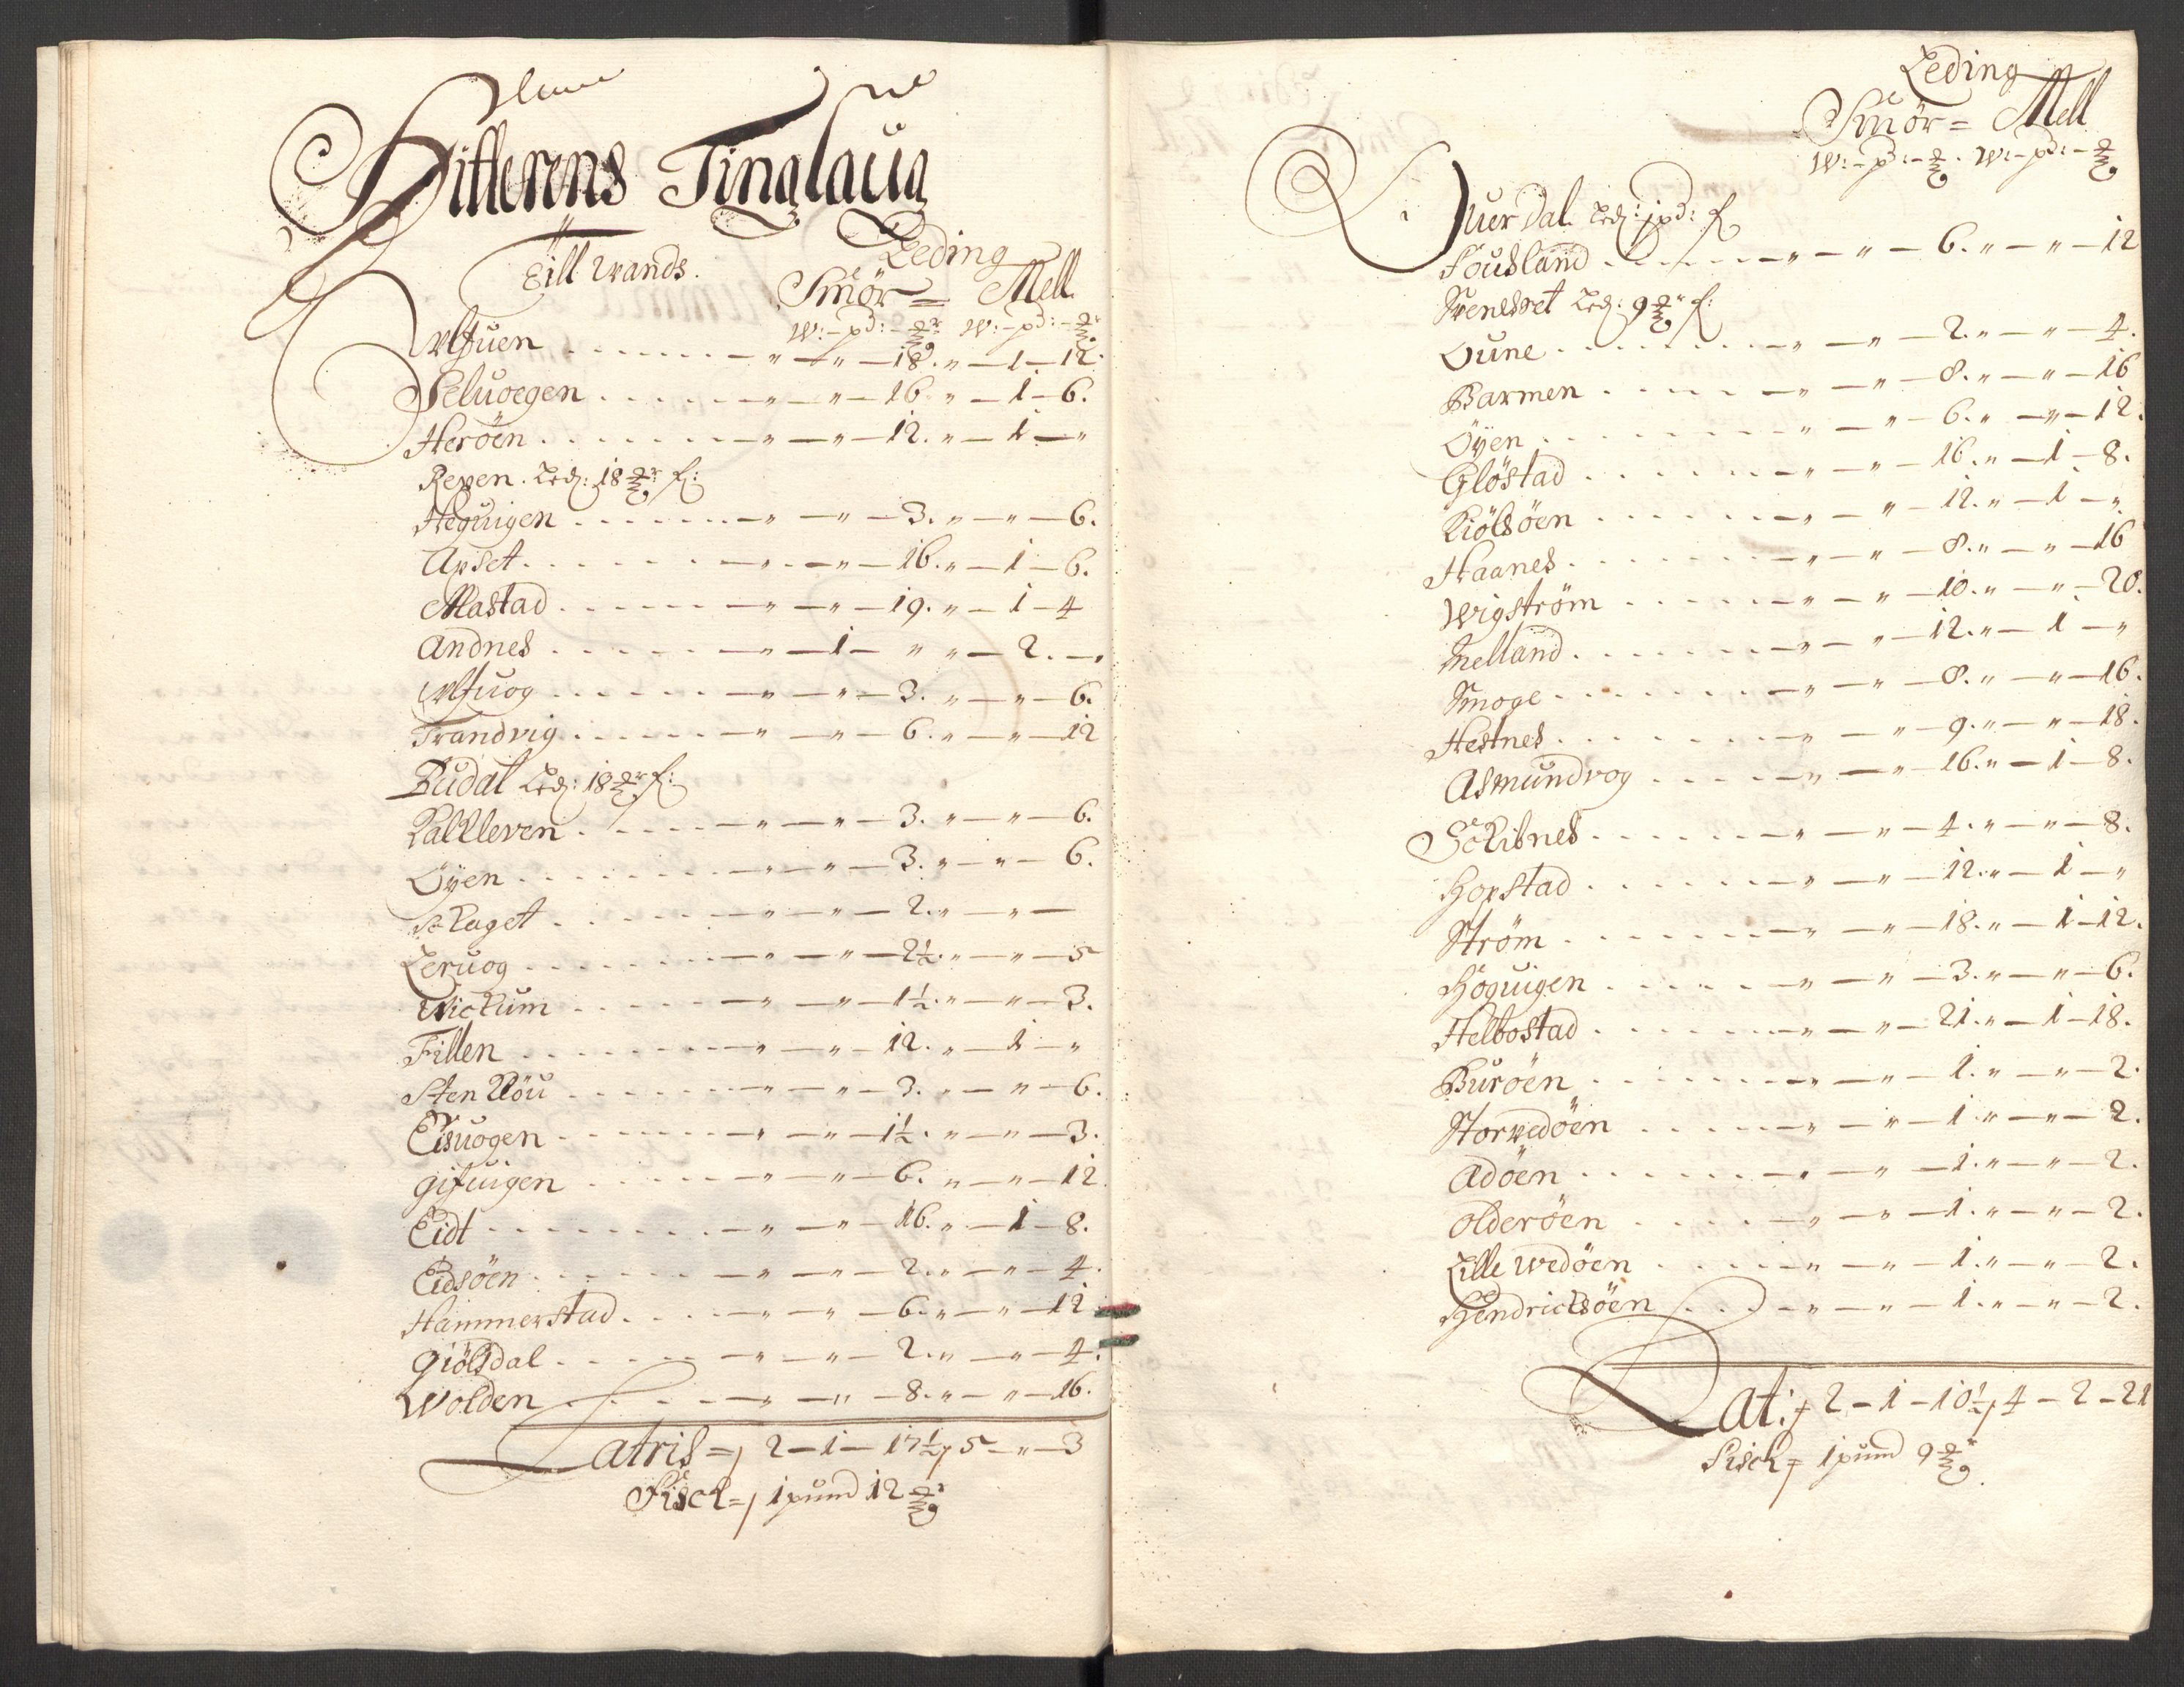 Hitterens Tinglaug
Eill Wands. Leding
Smör = Mell
W:–pd:– W:–pd:–
Ulfuen . . . . . . . – " – " – 18. " – 1 – 12.
Seluoegen . . . . . – " – " – 16. " – 1 – 6.
Heröen . . . . . . . – " – " – 12. " – 1 – "
Reven. Led: 18 f:
Heguigen . . . . . . – " – " – 3. " – " – 6.
Apset . . . . . . – " – " – 16. " – 1 – 6.
Mastad . . . . . . – " – " – 19. " – 1 – 4
Andnes . . . . . . – " – 1 – " " – 2. – "
Ulfuog . . . . . . – " – " – 3. " – " – 6.
Trandvig . . . . . . – " – " – 6. " – " – 12
Budal Led: 18 f:
Kalkleven . . . . . – " – " – 3. " – " – 6.
Öyen . . . . . . . – " – " – 3. " – " – 6.
Sckaget . . . . . . – " – " – 2. " – " –
Leruog . . . . . . – " – " – 2½. " – " – 5
Wickum . . . . . . – " – " – 1½. " – " – 3.
Fillen . . . . . . . – " – " – 12. " – 1 – "
Sten Röu . . . . . . – " – " – 3. " – " – 6.
Eisuogen . . . . . . – " – " – 1½. " – " – 3.
Gifuigen . . . . . . – " – " – 6. " – " – 12.
Eidt . . . . . . . – " – " – 16. " – 1 – 8.
Eidsöen . . . . . . – " – " – 2. " – " – 4.
Hammerstad . . . . – " – " – 6. " – " – 12
Giölsdal . . . . . . – " – " – 2. " – " – 4.
Wolden . . . . . – " – " – 8. " – " – 16.
Latris =/ 2 – 1 – 17½/ 5 – " – 3
Fisck =/ 1 pund 12
Leding
Smör = Mell
W:–pd:– W:–pd:–
Quer dal Led: 1 pd: f
Fousland . . . . . – " – " – 6. " – " – 12
Svendset Led: 9 f:
Oune . . . . . . . – " – " – 2. " – " – 4.
Barmen . . . . . . – " – " – 8. " – " – 16
Öyen . . . . . . . – " – " – 6. " – " – 12.
Gløstad . . . . . . – " – " – 16. " – 1 – 8.
Kiölsöen . . . . . . – " – " – 12. " – 1 – "
Haanes . . . . . . – " – " – 8. " – " – 16
Wigström . . . . . – " – " – 10. " – " – 20.
Melland . . . . . . – " – " – 12. " – 1 – "
Smoge . . . . . . – " – " – 8. " – " – 16.
Hestnes . . . . . . – " – " – 9. " – " – 18.
Asmundvog . . . . – " – " – 16. " – 1 – 8.
Sckibnes . . . . . . – " – " – 4. " – " – 8.
Hopstad . . . . . . – " – " – 12. " – 1 – "
Ström . . . . . . . – " – " – 18. " – 1 – 12.
Höguigen . . . . . – " – " – 3. " – " – 6.
Helbostad . . . . . – " – " – 21. " – 1 – 18.
Buröen . . . . . . – " – " – 1. " – " – 2.
Storvedöen . . . . – " – " – 1. " – " – 2.
Adöen . . . . . . – " – " – 1. " – " – 2.
Olderöen . . . . . – " – " – 1. " – " – 2.
Lille wedöen . . . . – " – " – 1. " – " – 2.
Hendricksöen . . . – " – " – 1. " – " – 2.
Lat: / 2 – 1 – 10½/ 4 – 2 – 21
Fisck =/ 1 pund 9